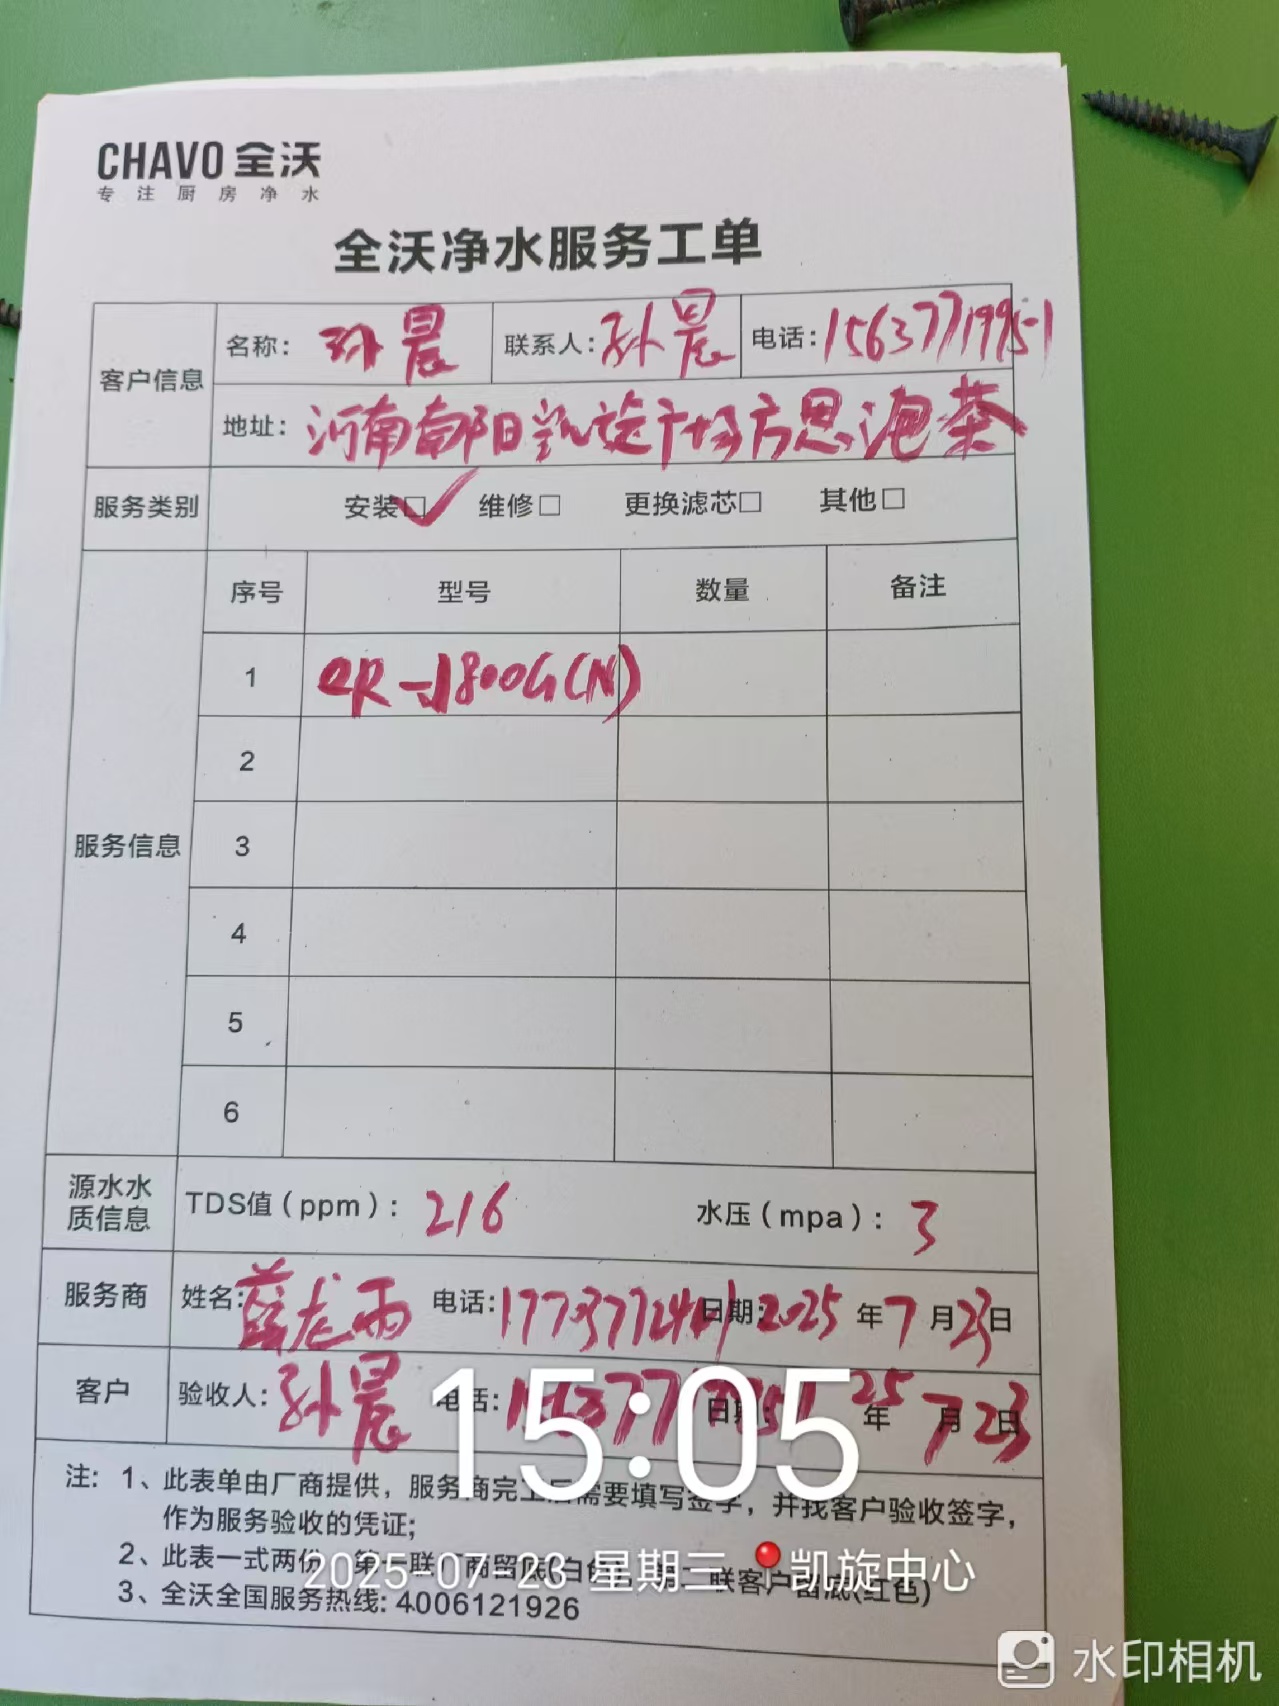 CHAVO 全沃
专注厨房净水
全沃净水服务工单
客户信息
名称: 孙晨 联系人: 孙晨 电话: 15637719951
地址: 河南南阳凯旋广场方思泡茶
服务类别 安装□✓ 维修□ 更换滤芯□ 其他□
服务信息
序号 型号 数量 备注
1 QR-J800G(N)
2
3
4
5
6
源水水质信息 TDS值(ppm): 216 水压(mpa): 3
服务商 姓名: 龙雨 电话: 日期: 2025年7月23日
客户 验收人: 孙晨 电话: 日期: 25年7月23日
注: 1、此表单由厂商提供，服务商完工后需要填写签字，并找客户验收签字，
作为服务验收的凭证;
2、此表一式两份，第一联厂商留底(白色)，第二联客户留底(红色)
3、全沃全国服务热线: 4006121926
15:05
2025-07-23 星期三 凯旋中心
水印相机